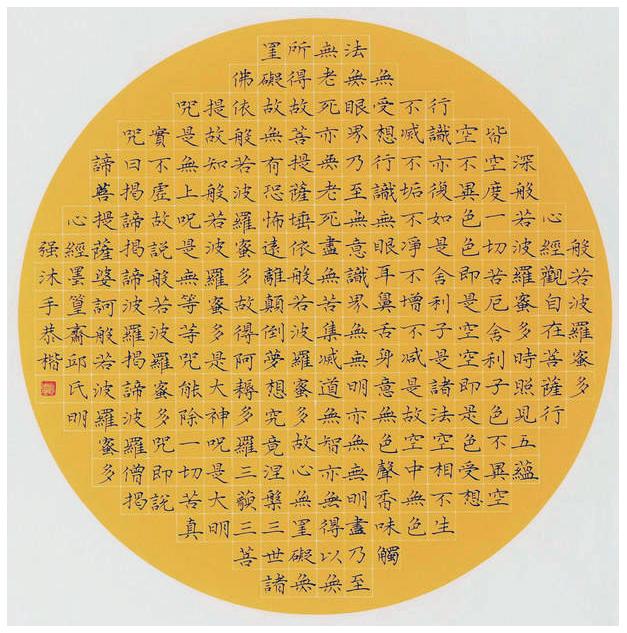 般若波羅蜜多
心經觀自在菩薩行
深般若波羅蜜多時照見五蘊
皆空度一切苦厄舍利子色不異空
空不異色色即是空空即是色受想
行識亦復如是舍利子是諸法空相不生
不滅不垢不淨不增不減是故空中無色
無受想行識無眼耳鼻舌身意無色聲香味觸
法無眼界乃至無意識界無無明亦無無明盡乃至
無老死亦無老死盡無苦集滅道無智亦無得以無
所得故菩提薩埵依般若波羅蜜多故心無罣礙無
罣礙故無有恐怖遠離顛倒夢想究竟涅槃三世諸
佛依般若波羅蜜多故得阿耨多羅三藐三菩
提故知般若波羅蜜多是大神咒是大明
咒是無上咒是無等等咒能除一切苦真
實不虛故說般若波羅蜜多咒即說
咒曰揭諦揭諦波羅揭諦波羅僧揭
諦菩提薩婆訶般若波羅蜜多
心經墨篁齋邱氏明
强沐手恭楷